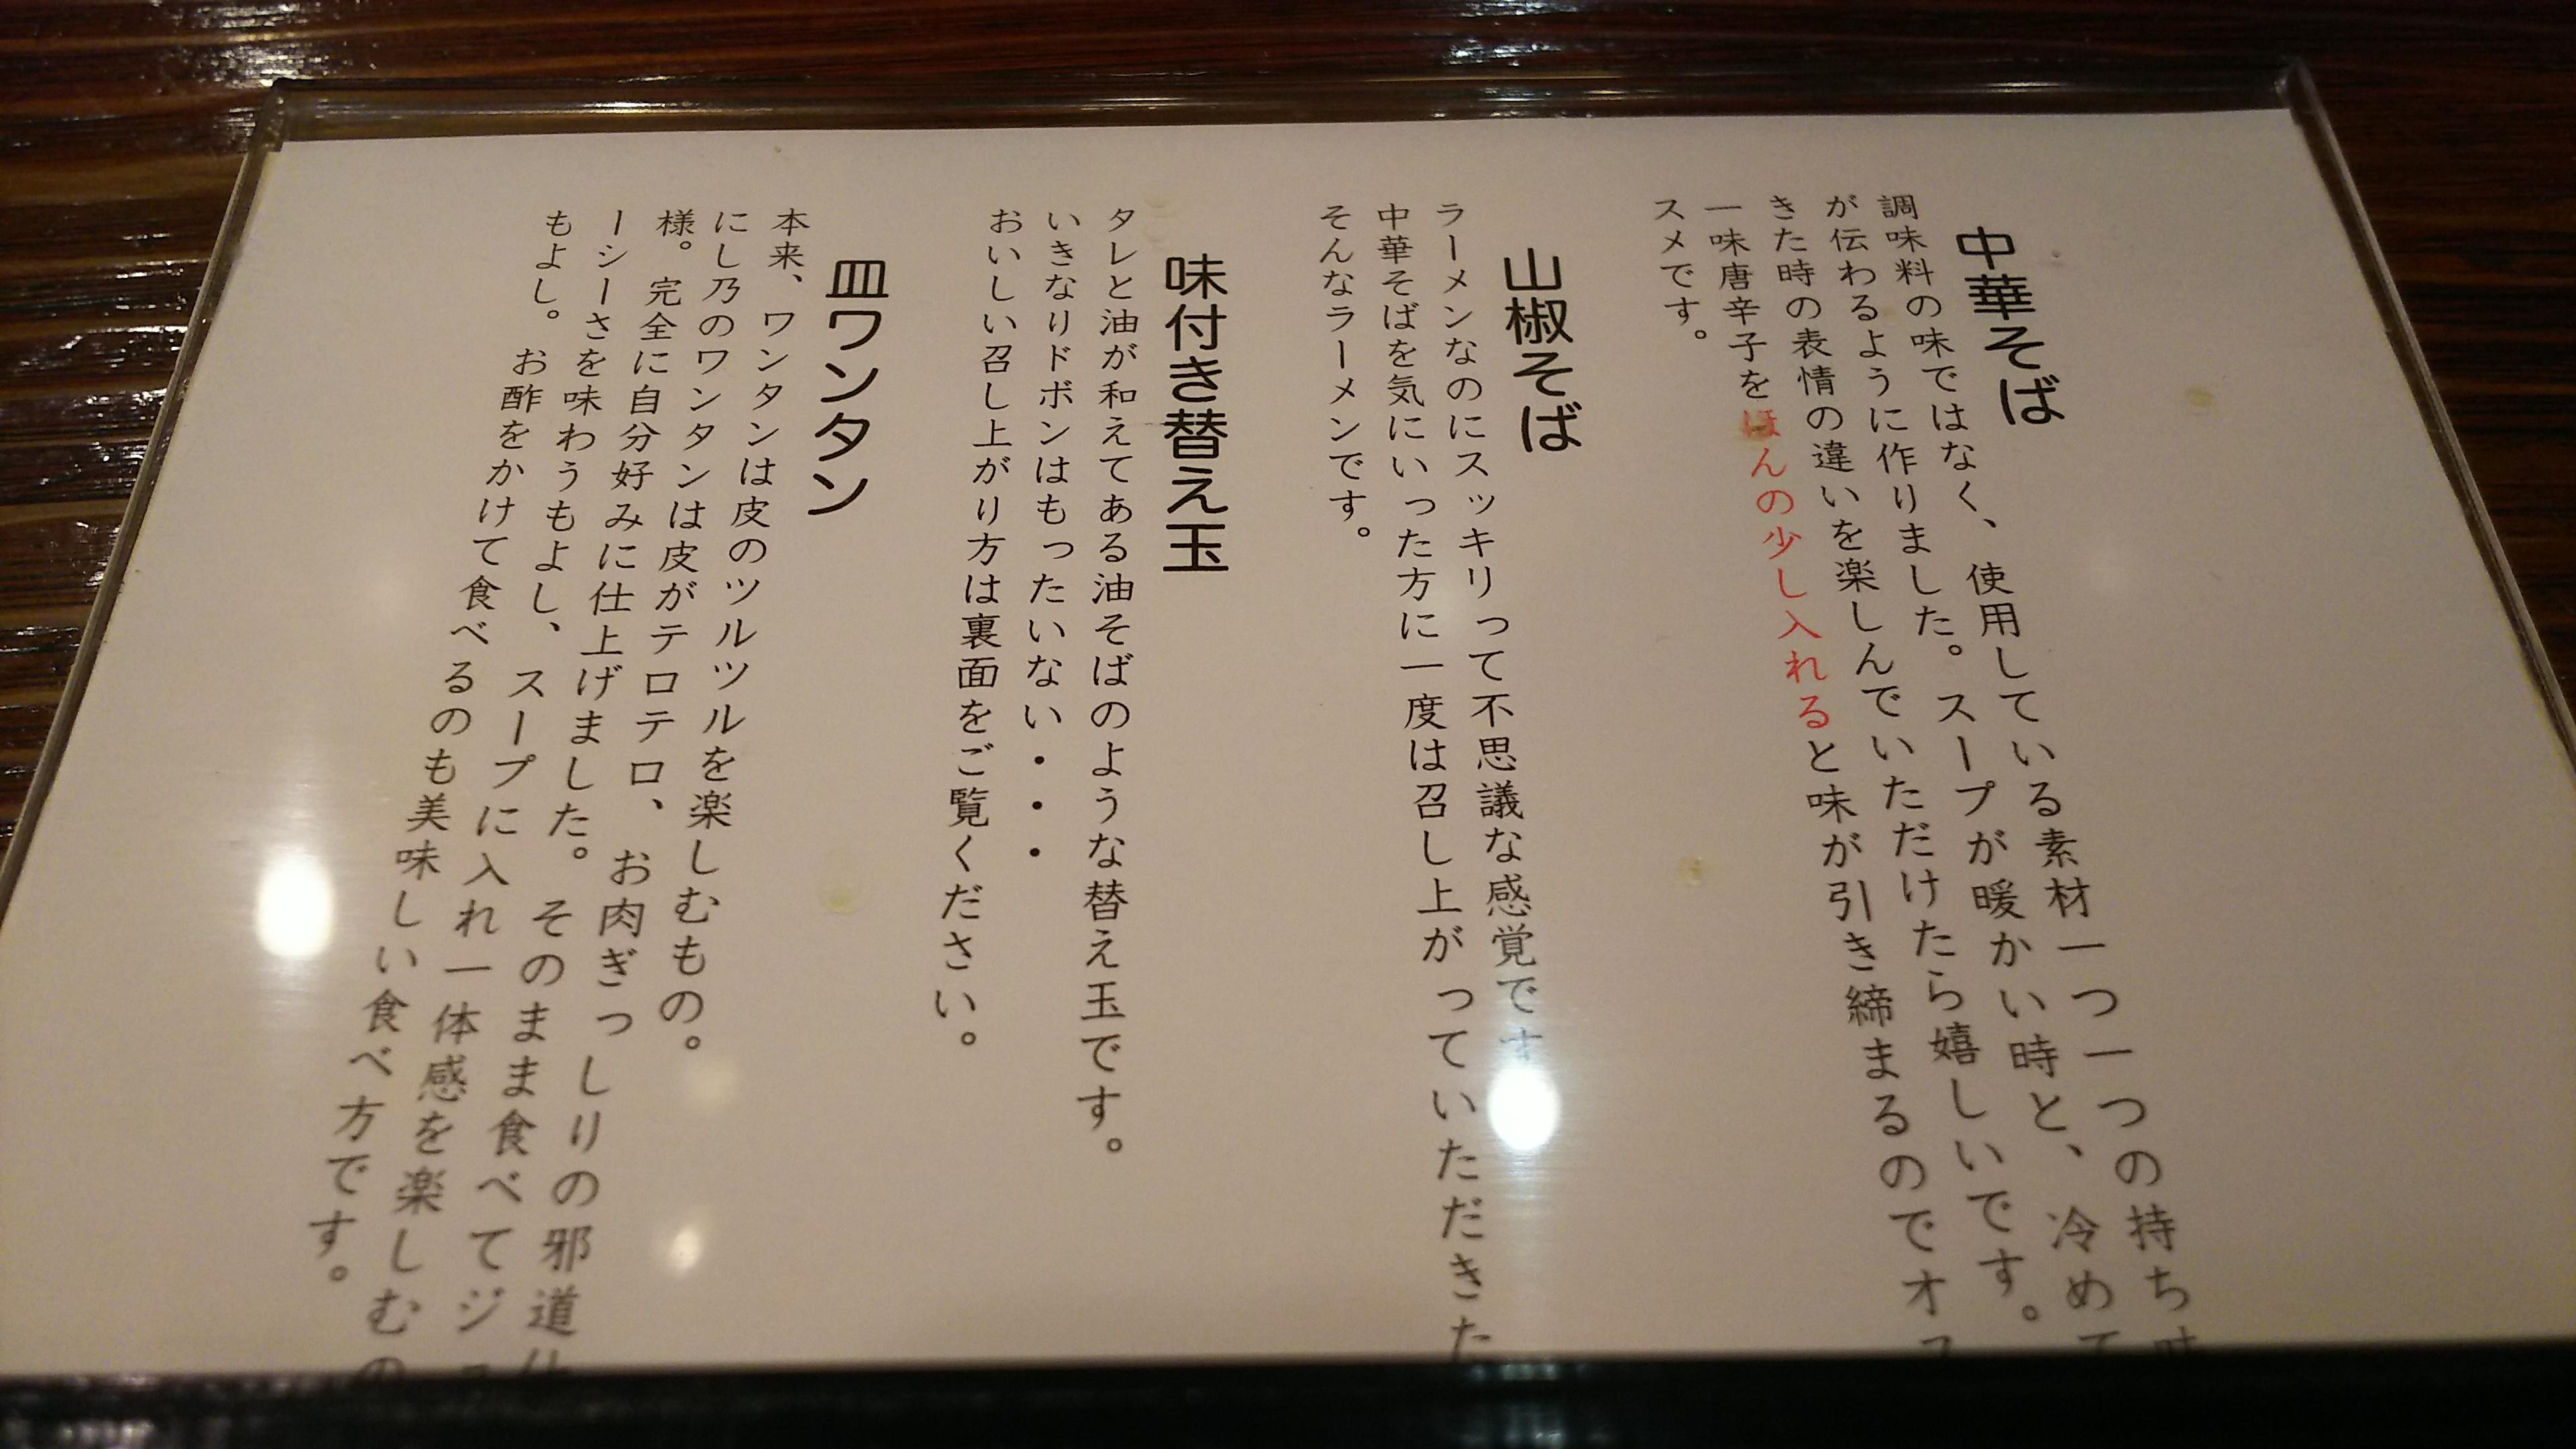 中華そば
調味料の味ではなく、使用している素材一つ一つの持ち味
が伝わるように作りました。スープが暖かい時と、冷めて
きた時の表情の違いを楽しんでいただけたら嬉しいです。
一味唐辛子をほんの少し入れると味が引き締まるのでオス
スメです。
山椒そば
ラーメンなのにスッキリって不思議な感覚です
中華そばを気にいった方に一度は召し上がっていただきた
そんなラーメンです。
味付き替え玉
タレと油が和えてある油そばのような替え玉です。
いきなりドボンはもったいない・・・
おいしい召し上がり方は裏面をご覧ください。
皿ワンタン
本来、ワンタンは皮のツルツルを楽しむもの。
にし乃のワンタンは皮がテロテロ、お肉ぎっしりの邪道仕
様。完全に自分好みに仕上げました。そのまま食べてジュ
ーシーさを味わうもよし、スープに入れ一体感を楽しむの
もよし。お酢をかけて食べるのも美味しい食べ方です。